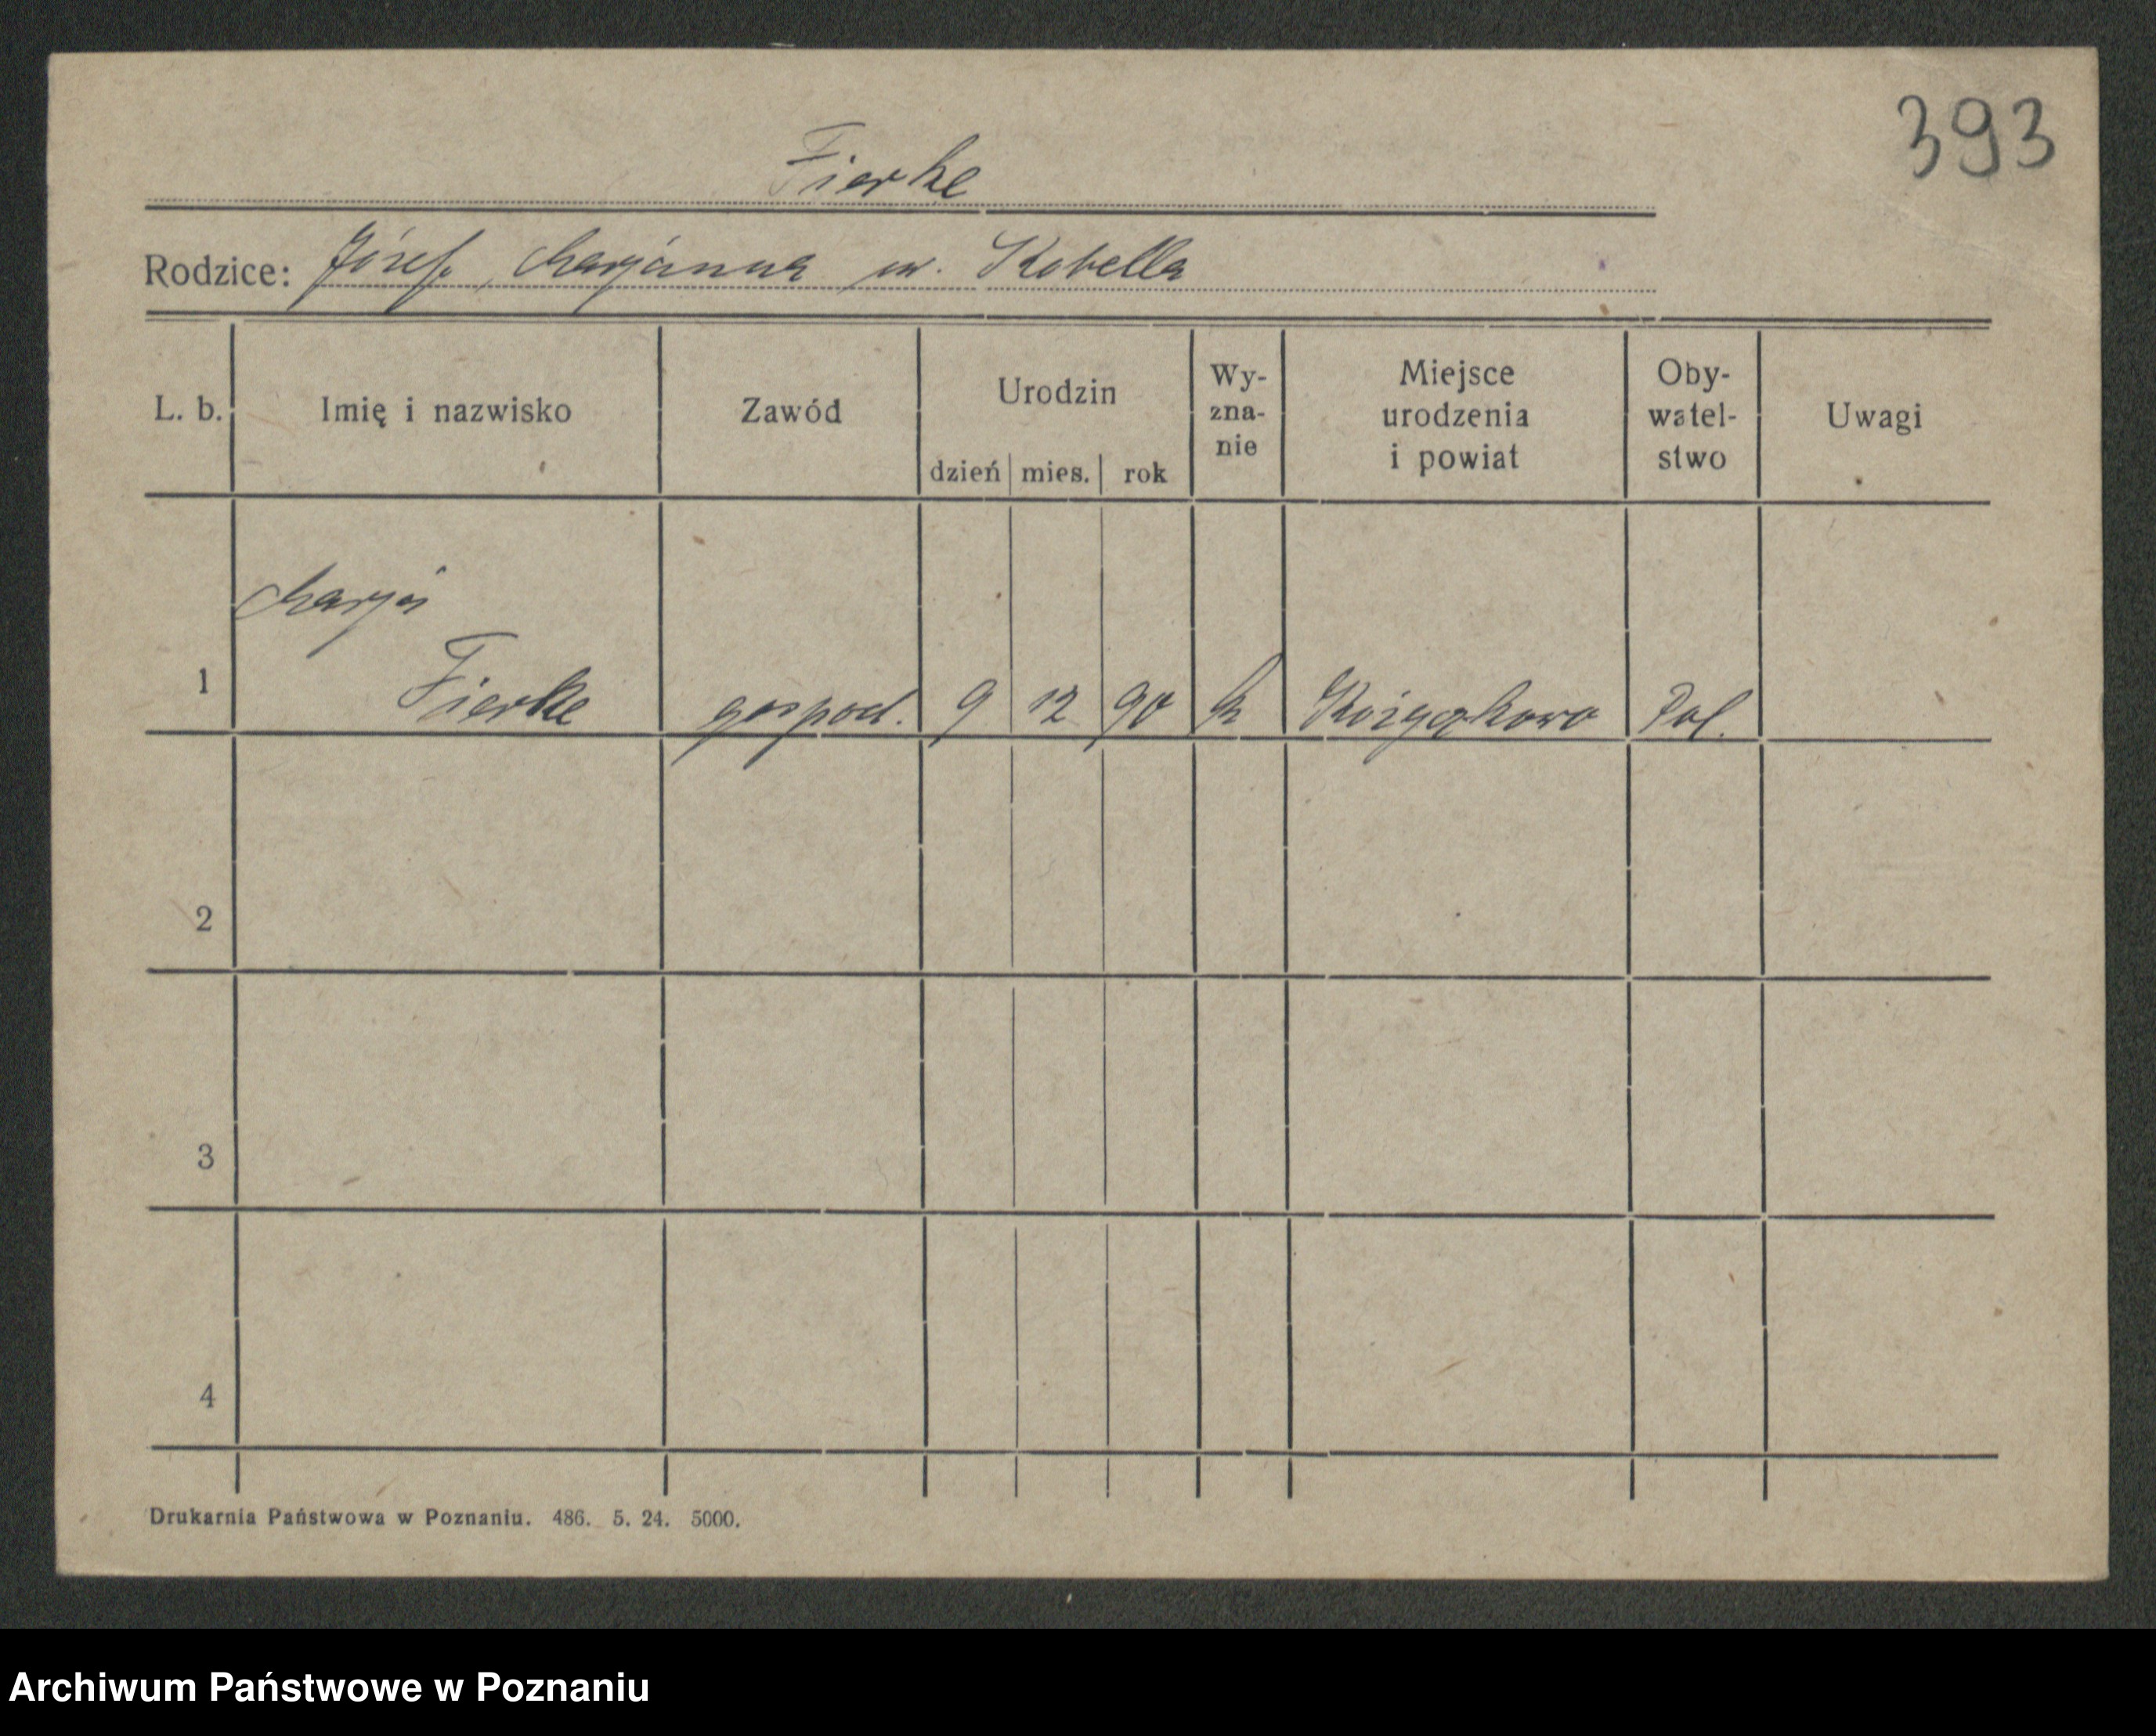 393
Fierke
Rodzice: Józef, Marjanna ur. Kobella
L. b. Imię i nazwisko Zawód Urodzin dzień mies. rok Wy-zna-nie Miejsce urodzenia i powiat Oby-watel-stwo Uwagi
Marja
1 Fierke gospod. 9 12 90 k Pol.
2
3
4
Drukarnia Państwowa w Poznaniu. 486. 5. 24. 5000.
Archiwum Państwowe w Poznaniu